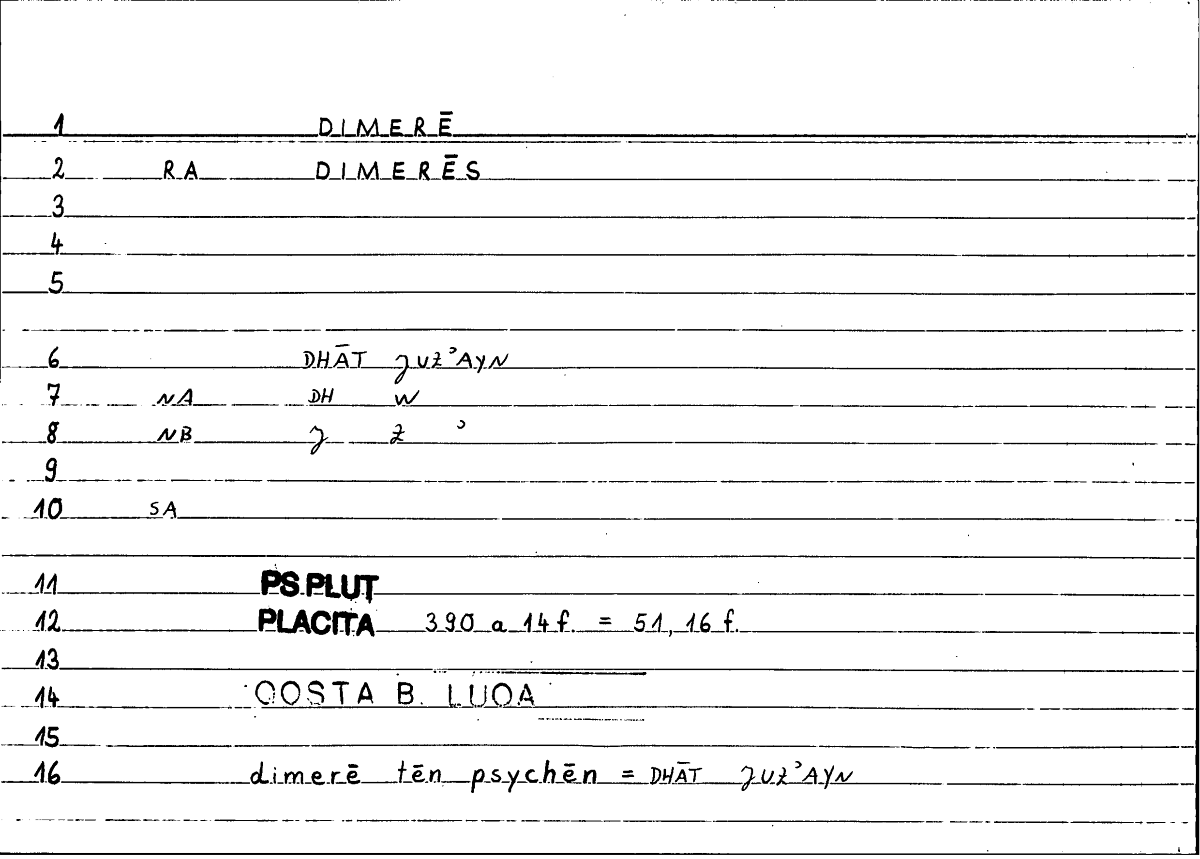 1 DIMERĒ
2 RA DIMERĒS
3
4
5
6 DHĀT ǦUZʾAYN
7 NA DH W
8 NB Ǧ Z ʾ
9
10 SA
11 PS.PLUT
12 PLACITA 390 a 14 f. = 51, 16 f.
13
14 QOSTA B. LUQA
15
16 dimerē tēn psychēn = DHĀT ǦUZʾAYN